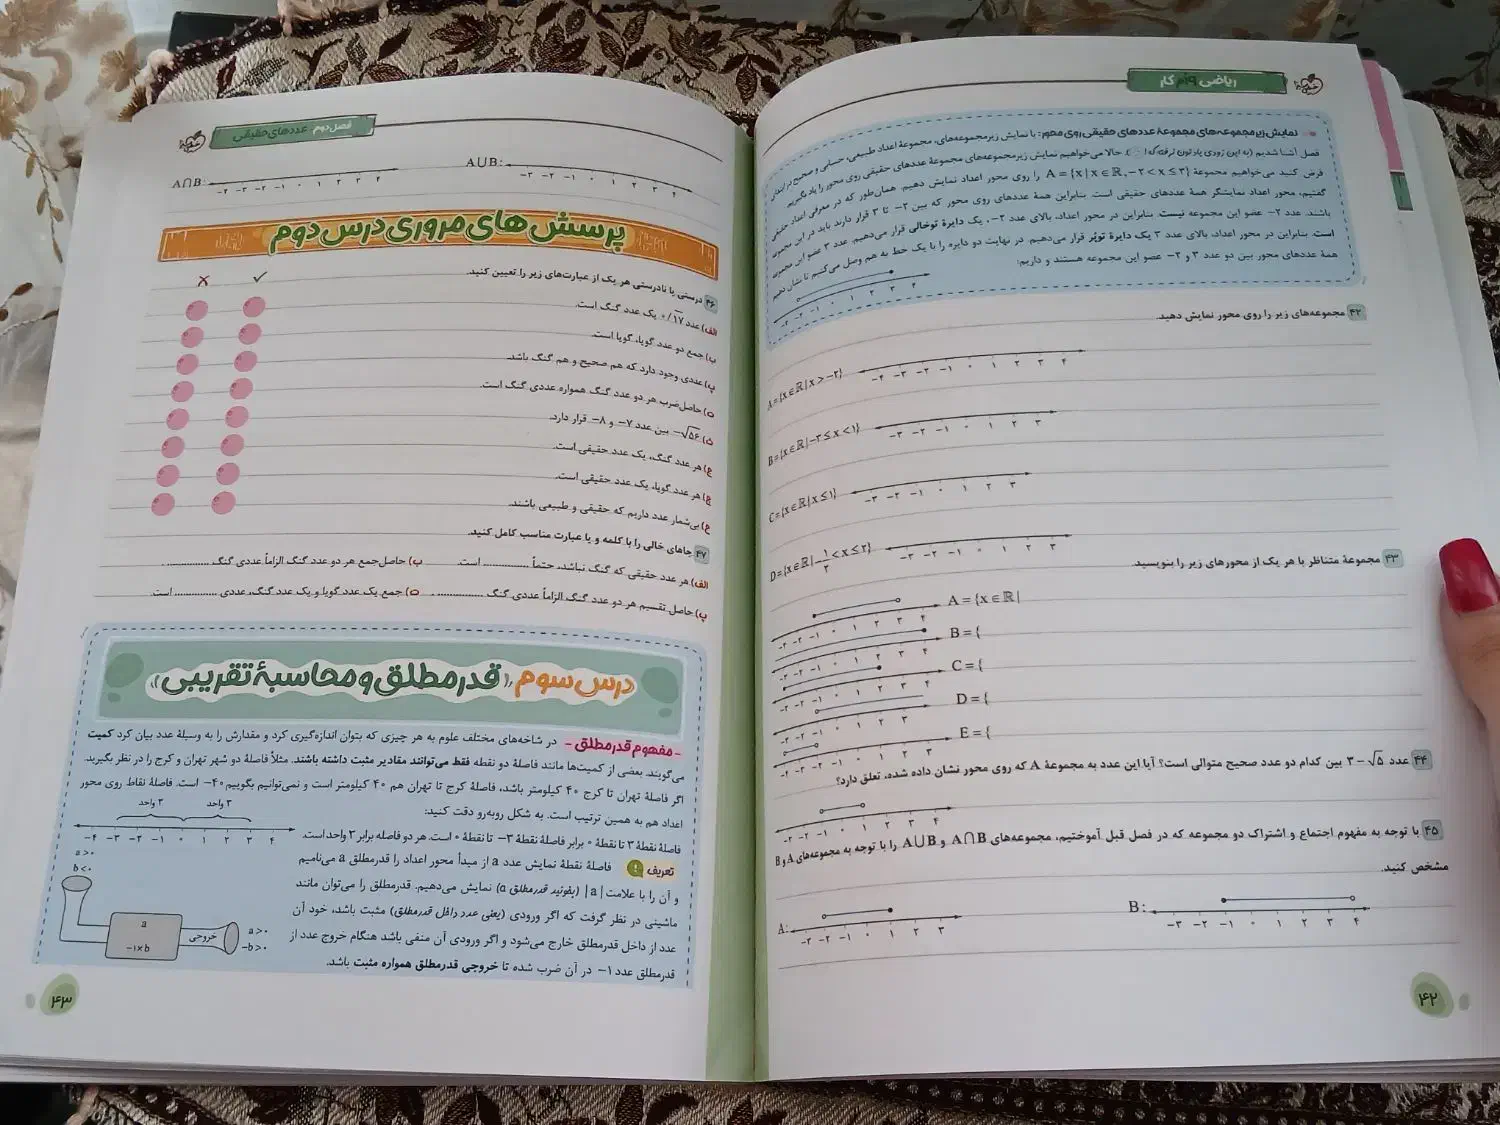 ریاضی ۹اُم کار
نمایش زیرمجموعه‌های مجموعهٔ عددهای حقیقی روی محور: با نمایش زیرمجموعه‌های، مجموعهٔ اعداد طبیعی، حسابی و صحیح در ابتدای
فصل آشنا شدیم (به این زودی یادتون نرفته که!). حالا می‌خواهیم نمایش زیرمجموعه‌های مجموعهٔ عددهای حقیقی روی محور را یاد بگیریم.
فرض کنید می‌خواهیم مجموعهٔ A = {x | x ∈ ℝ, −۲ < x ≤ ۳} را روی محور اعداد نمایش دهیم. همان‌طور که در معرفی اعداد حقیقی
گفتیم، محور اعداد نمایشگر همهٔ عددهای حقیقی است. بنابراین همهٔ عددهای روی محور که بین ۲− تا ۳ قرار دارند باید در این مجموعه
باشند. عدد ۲− عضو این مجموعه نیست بنابراین در محور اعداد، بالای عدد ۲−، یک دایرهٔ توخالی قرار می‌دهیم. عدد ۳ عضو این مجموعه
است. بنابراین در محور اعداد، بالای عدد ۳ یک دایرهٔ توپُر قرار می‌دهیم. در نهایت دو دایره را با یک خط به هم وصل می‌کنیم تا نشان دهیم
همهٔ عددهای محور بین دو عدد ۳ و ۲− عضو این مجموعه هستند و داریم:
−۳ −۲ −۱ ۰ ۱ ۲ ۳ ۴
۴۲ مجموعه‌های زیر را روی محور نمایش دهید.
A = {x ∈ ℝ | x > −۲} −۴ −۳ −۲ −۱ ۰ ۱ ۲ ۳ ۴
B = {x ∈ ℝ | −۲ ≤ x < ۱} −۳ −۲ −۱ ۰ ۱ ۲ ۳
C = {x ∈ ℝ | x ≤ ۱} −۳ −۲ −۱ ۰ ۱ ۲ ۳
D = {x ∈ ℝ | −۱/۲ < x ≤ ۲} −۳ −۲ −۱ ۰ ۱ ۲ ۳
۴۳ مجموعهٔ متناظر با هر یک از محورهای زیر را بنویسید.
−۳ −۲ −۱ ۰ ۱ ۲ ۳ ۴ A = {x ∈ ℝ |
−۳ −۲ −۱ ۰ ۱ ۲ ۳ ۴ B = {
−۳ −۲ −۱ ۰ ۱ ۲ ۳ ۴ C = {
−۳ −۲ −۱ ۰ ۱ ۲ ۳ D = {
−۳ −۲ −۱ ۰ ۱ ۲ ۳ E = {
۴۴ عدد ۳ − √۵ بین کدام دو عدد صحیح متوالی است؟ آیا این عدد به مجموعهٔ A که روی محور نشان داده شده، تعلق دارد؟
−۳ −۲ −۱ ۰ ۱ ۲ ۳ ۴
۴۵ با توجه به مفهوم اجتماع و اشتراک دو مجموعه که در فصل قبل آموختیم، مجموعه‌های A∩B و A∪B را با توجه به مجموعه‌های A و B
مشخص کنید.
A: −۳ −۲ −۱ ۰ ۱ ۲ ۳
B: −۳ −۲ −۱ ۰ ۱ ۲ ۳ ۴
۴۲
فصل دوم عددهای حقیقی
A∪B: −۳ −۲ −۱ ۰ ۱ ۲ ۳ ۴
A∩B: −۴ −۳ −۲ −۱ ۰ ۱ ۲ ۳ ۴
پرسش‌های مروری درس دوم
۴۶ درستی یا نادرستی هر یک از عبارت‌های زیر را تعیین کنید.
✓ ✗
الف) عدد ۰/۱۷ یک عدد گنگ است.
ب) جمع دو عدد گویا، گویا است.
پ) عددی وجود دارد که هم صحیح و هم گنگ باشد.
ت) حاصل‌ضرب هر دو عدد گنگ همواره عددی گنگ است.
ث) −√۵۶ بین عدد ۷− و ۸− قرار دارد.
ج) هر عدد گنگ، یک عدد حقیقی است.
چ) هر عدد گویا، یک عدد حقیقی است.
ح) بی‌شمار عدد داریم که حقیقی و طبیعی باشند.
۴۷ جاهای خالی را با کلمه و یا عبارت مناسب کامل کنید.
الف) هر عدد حقیقی که گنگ نباشد، حتماً .............. است. ب) حاصل‌جمع هر دو عدد گنگ الزاماً عددی گنگ .............. .
پ) حاصل تقسیم هر دو عدد گنگ الزاماً عددی گنگ .............. . ت) جمع یک عدد گویا و یک عدد گنگ، عددی .............. است.
درس سوم «قدرمطلق و محاسبهٔ تقریبی»
- مفهوم قدرمطلق - در شاخه‌های مختلف علوم به هر چیزی که بتوان اندازه‌گیری کرد و مقدارش را به وسیلهٔ عدد بیان کرد کمیت
می‌گویند. بعضی از کمیت‌ها مانند فاصلهٔ دو نقطه فقط می‌توانند مقادیر مثبت داشته باشند. مثلاً فاصلهٔ دو شهر تهران و کرج را در نظر بگیرید.
اگر فاصلهٔ تهران تا کرج ۴۰ کیلومتر باشد، فاصلهٔ کرج تا تهران هم ۴۰ کیلومتر است و نمی‌توانیم بگوییم ۴۰− است. فاصلهٔ نقاط روی محور
اعداد هم به همین ترتیب است. به شکل روبه‌رو دقت کنید:
۳ واحد ۳ واحد
−۴ −۳ −۲ −۱ ۰ ۱ ۲ ۳ ۴
فاصلهٔ نقطهٔ ۳ تا نقطهٔ ۰ برابر فاصلهٔ نقطهٔ ۳− تا نقطهٔ ۰ است. هر دو فاصله برابر ۳ واحد است.
تعریف فاصلهٔ نقطهٔ نمایش عدد a از مبدأ محور اعداد را قدرمطلق a می‌نامیم
و آن را با علامت |a| (بخونید قدرمطلق a) نمایش می‌دهیم. قدرمطلق را می‌توان مانند
ماشینی در نظر گرفت که اگر ورودی (یعنی عدد داخل قدرمطلق) مثبت باشد، خود آن
عدد از داخل قدرمطلق خارج می‌شود و اگر ورودی آن منفی باشد هنگام خروج عدد از
قدرمطلق عدد ۱− در آن ضرب شده تا خروجی قدرمطلق همواره مثبت باشد.
a > ۰
b < ۰
a
−۱×b
خروجی
a > ۰
−b > ۰
۴۳